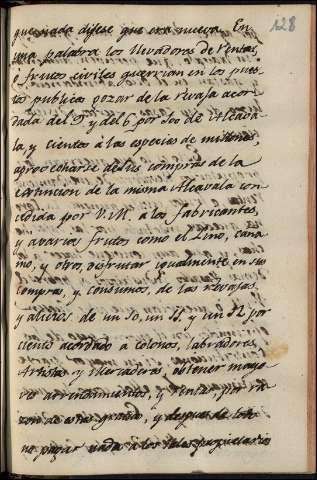 128
que nada disese que era nueva. En
una palabra los llevadores de rentas,
ó frutos civiles querrian en los pues
tos publicos gozar de la revaja acor
dada del 9 y del 6 por 100 de Alcava
la, y cientos á las especies de millones,
aprovecharse de sus compras de la
extincion de la misma Alcavala con
cedida por V.M. á los fabricantes,
y á varios frutos como el Lino, caña
mo, y otros, disfrutar igualmente en sus
compras, y consumos, de las revajas
y alivios de un 10, un 11 y un 12 por
ciento acordado á colonos, labradores,
Artistas y Mercaderes, obtener mayo
res arrendamientos, y rentas por ra
zon de estas gracias, y despues de todo
no pagar nada á los tales propietarios